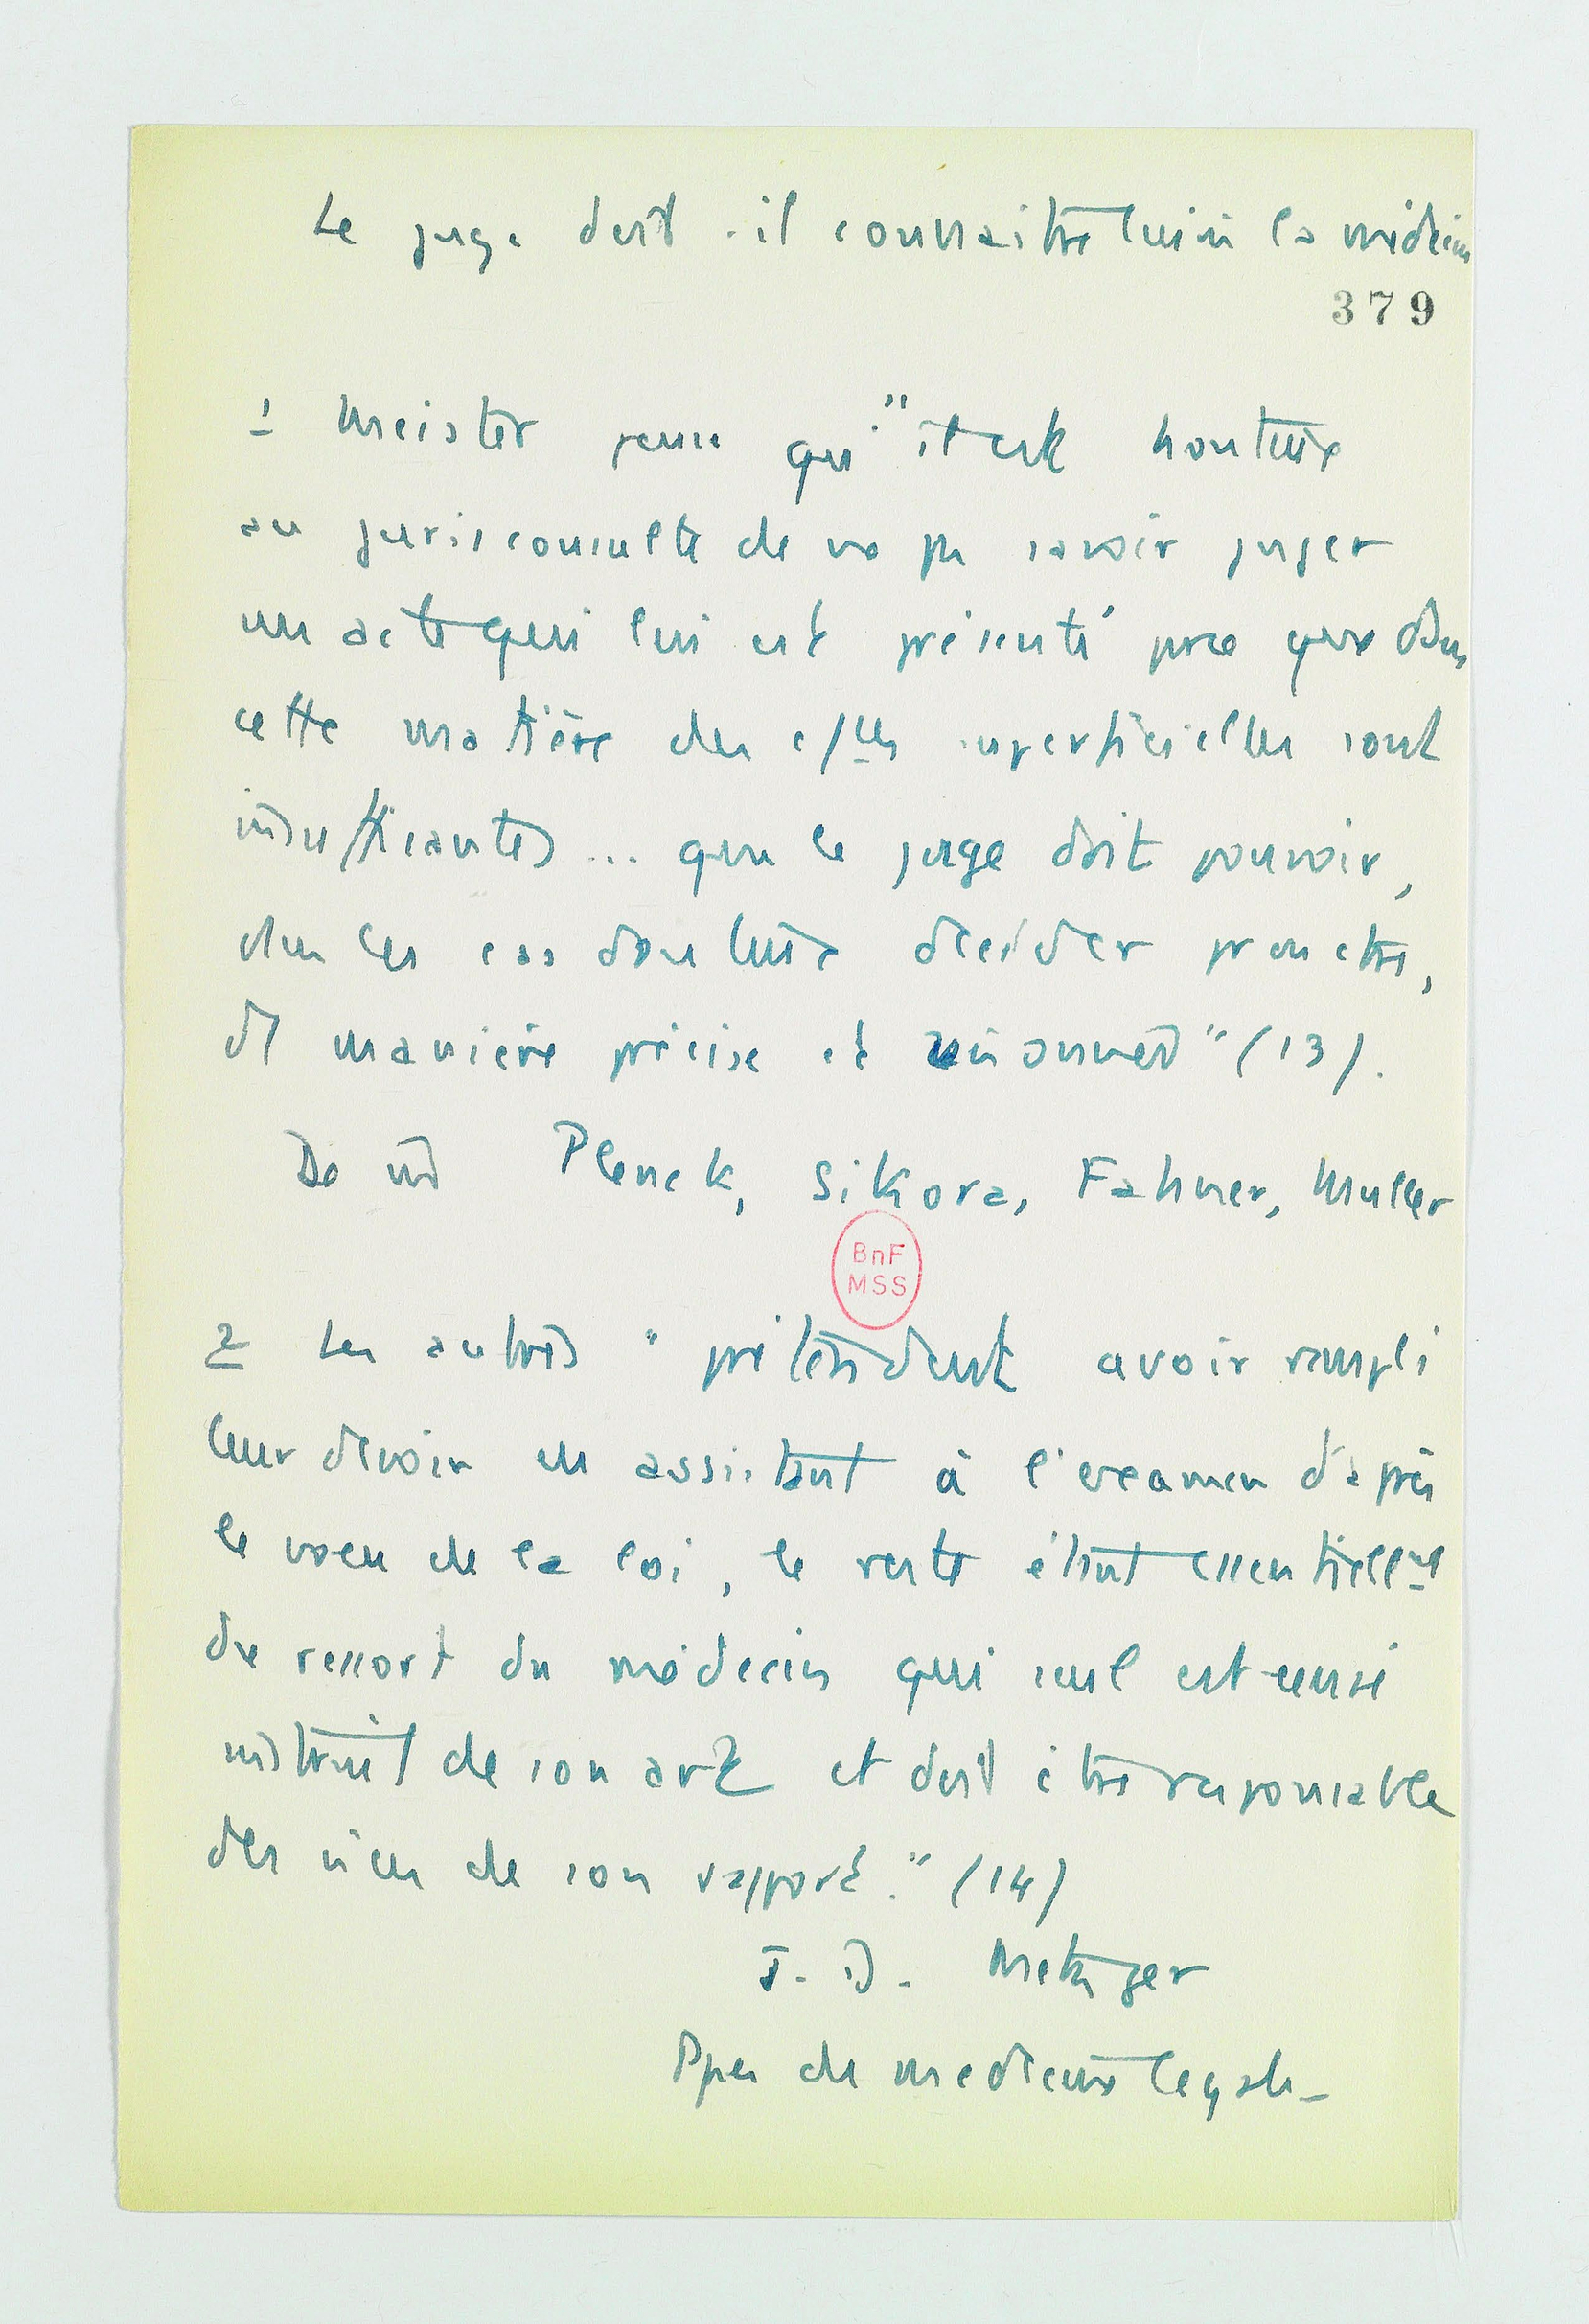 Le juge doit-il connaitre lui m la médecine
379
1 Meister pense qu'"il est honteux
au jurisconsulte de ne pas savoir juger
un acte qui lui est présenté parce que dans
cette matière des c/ces superficielles sont
insuffisantes ... que le juge doit pouvoir,
dans les cas douteux décider par
de manière précise et raisonnée" (13).
De m Plenck, Sikora, Fahner, Muller
BnF
MSS
2 Les autres "prétendent avoir rempli
leur devoir en assistant à l'examen d'après
le voeu de la loi, le reste étant essentiellemt
du ressort du médecin qui seul est censé
instruit de son art et doit être responsable
des vices de son rapport." (14)
J. D. Metzger
Ppes de medecine legale_